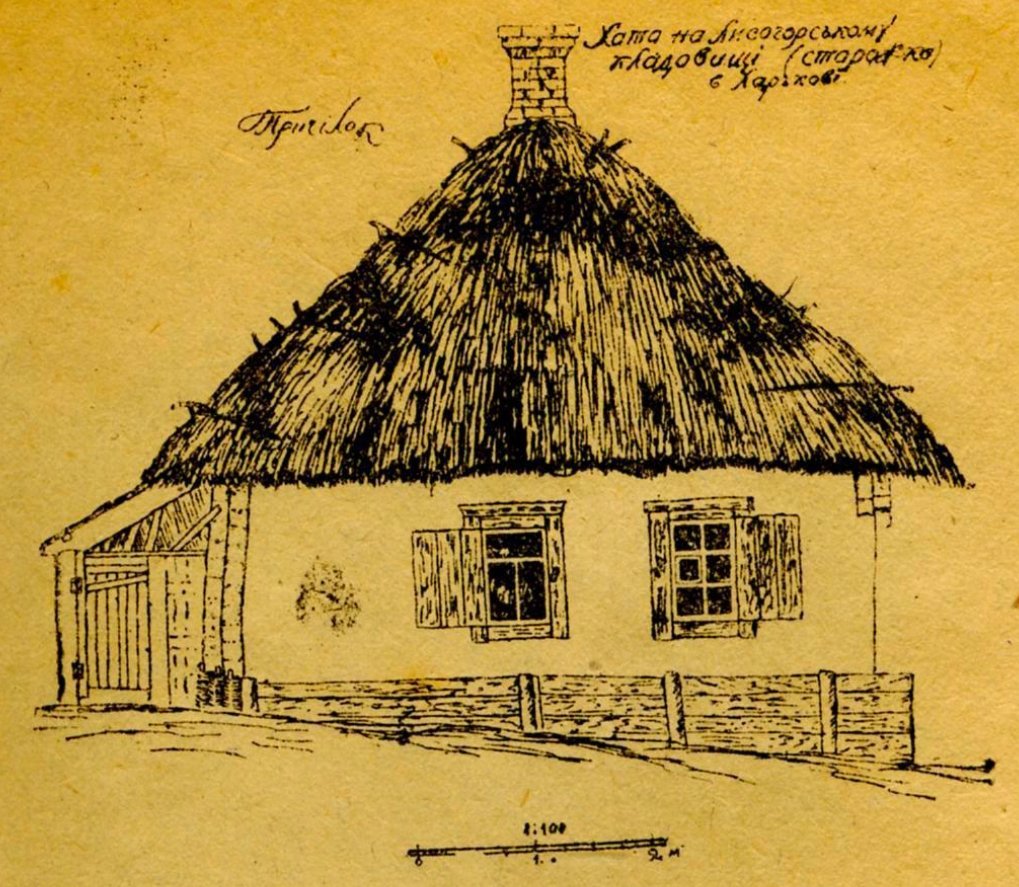 Хата на Лисогорському
кладовищі
в Харькові
Причілок
1:100
0 1. 2 м